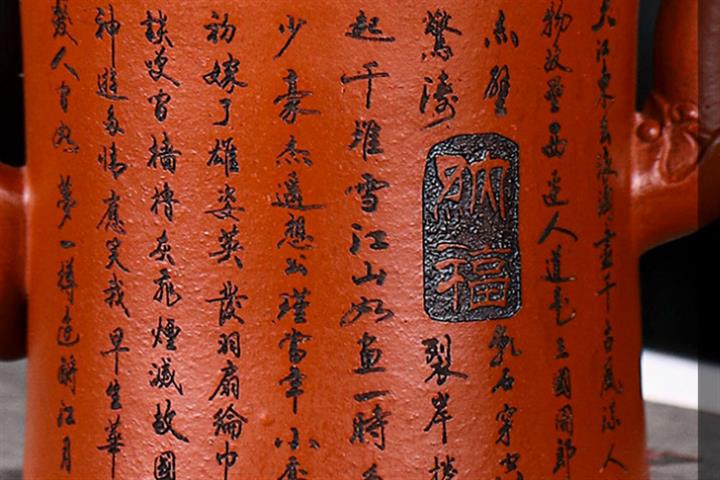 大江東去浪淘盡千古風流人
物故壘西邊人道是三國周郎
赤壁亂石穿空
驚濤裂岸捲
起千堆雪江山如畫一時多
少豪杰遙想公瑾當年小喬
初嫁了雄姿英發羽扇綸巾
談笑間檣櫓灰飛煙滅故國
神遊多情應笑我早生華
髮人間如夢一樽還酹江月
納福